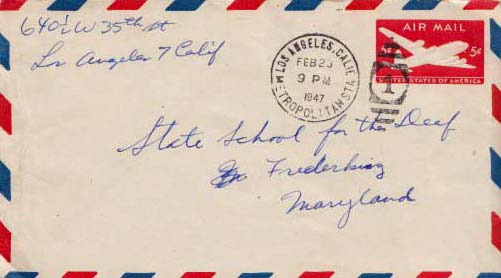 640½ W 35th St
Los Angeles 7 Calif
LOS ANGELES, CALIF.
METROPOLITAN STA.
FEB 23
9 PM
1947
1
AIR MAIL
5¢ 5¢
UNITED STATES OF AMERICA
State School for the Deaf
Frederking
Maryland